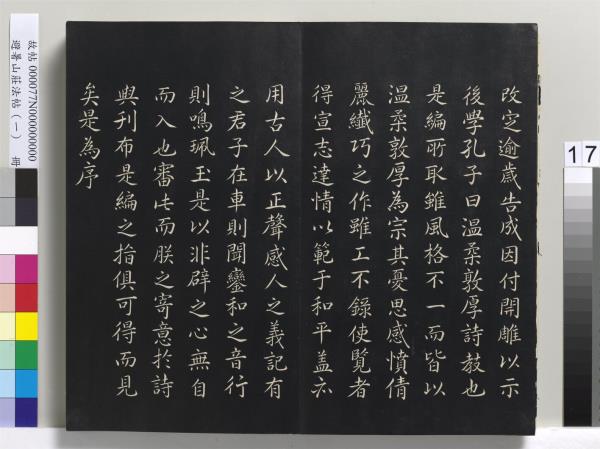 改定逾歲告成因付開雕以示
後學孔子曰溫柔敦厚詩教也
是編所取雖風格不一而皆以
溫柔敦厚為宗其憂思感憤倩
麗纖巧之作雖工不錄使覽者
得宣志達情以範于和平蓋亦
用古人以正聲感人之義記有
之君子在車則聞鸞和之音行
則鳴珮玉是以非辟之心無自
而入也審此而朕之寄意於詩
與刊布是編之指俱可得而見
矣是為序
故帖 000077N000000000
避暑山莊法帖(一) 冊
17